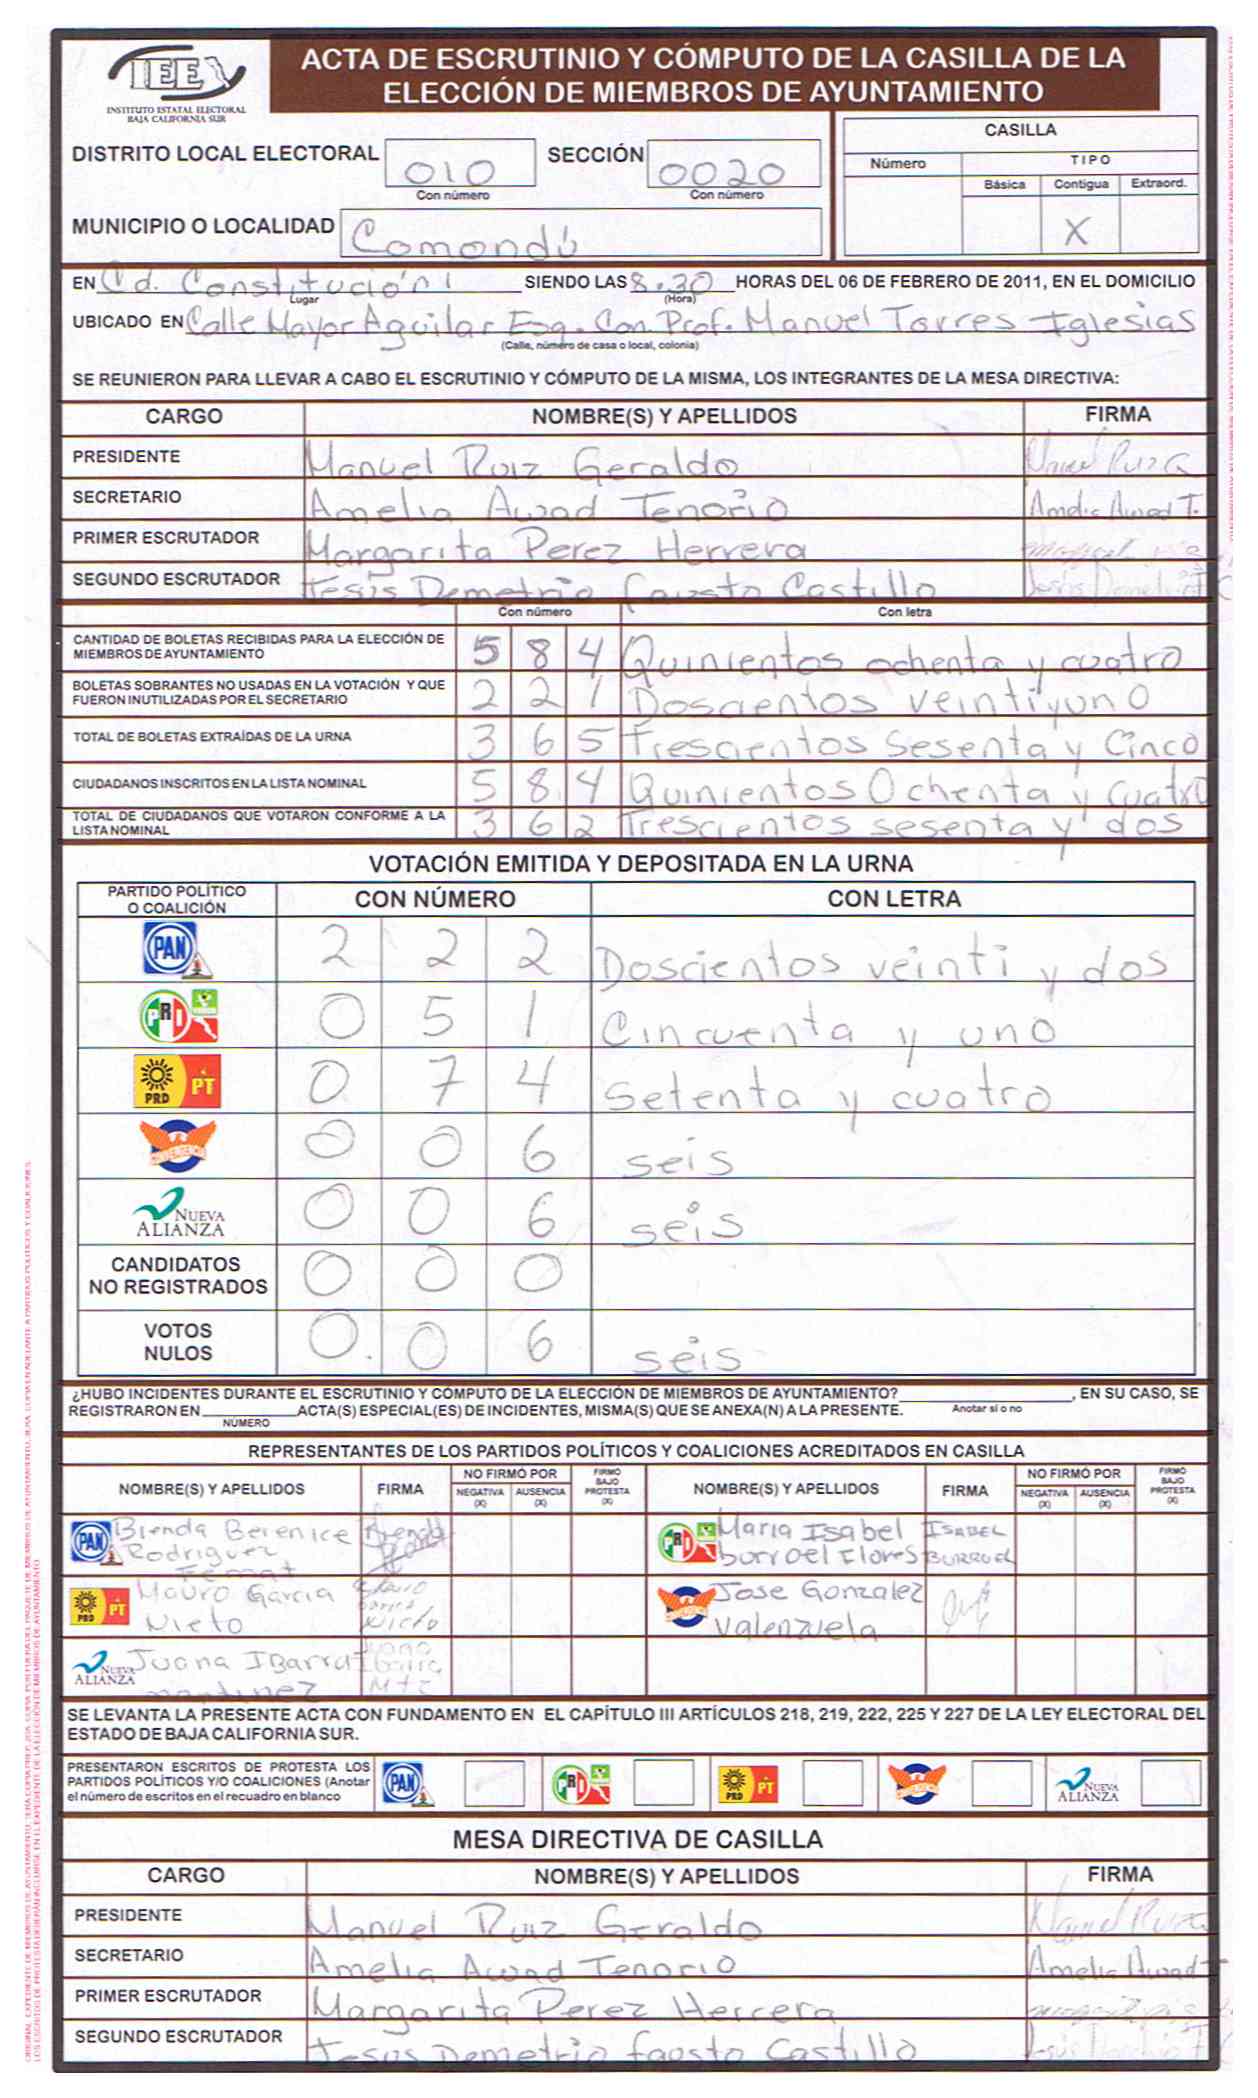 IEE
INSTITUTO ESTATAL ELECTORAL
BAJA CALIFORNIA SUR
ACTA DE ESCRUTINIO Y CÓMPUTO DE LA CASILLA DE LA
ELECCIÓN DE MIEMBROS DE AYUNTAMIENTO
DISTRITO LOCAL ELECTORAL 010 SECCIÓN 0020
Con número Con número
MUNICIPIO O LOCALIDAD Comondú
CASILLA
Número TIPO
Básica Contigua Extraord.
X
EN Cd. Constitución SIENDO LAS 8.30 HORAS DEL 06 DE FEBRERO DE 2011, EN EL DOMICILIO
Lugar (Hora)
UBICADO EN Calle Mayor Aguilar Esq. Con. Prof. Manuel Torres Iglesias
(Calle, número de casa o local, colonia)
SE REUNIERON PARA LLEVAR A CABO EL ESCRUTINIO Y CÓMPUTO DE LA MISMA, LOS INTEGRANTES DE LA MESA DIRECTIVA:
CARGO NOMBRE(S) Y APELLIDOS FIRMA
PRESIDENTE Manuel Ruiz Geraldo Manuel Ruiz G
SECRETARIO Amelia Awad Tenorio Amelia Awad T.
PRIMER ESCRUTADOR Margarita Perez Herrera
SEGUNDO ESCRUTADOR Jesús Demetrio Fausto Castillo Jesús Demetrio F C
Con número Con letra
CANTIDAD DE BOLETAS RECIBIDAS PARA LA ELECCIÓN DE
MIEMBROS DE AYUNTAMIENTO 5 8 4 Quinientos ochenta y cuatro
BOLETAS SOBRANTES NO USADAS EN LA VOTACIÓN Y QUE
FUERON INUTILIZADAS POR EL SECRETARIO 2 2 1 Doscientos veinti y uno
TOTAL DE BOLETAS EXTRAÍDAS DE LA URNA 3 6 5 Trescientos Sesenta y Cinco
CIUDADANOS INSCRITOS EN LA LISTA NOMINAL 5 8 4 Quinientos Ochenta y Cuatro
TOTAL DE CIUDADANOS QUE VOTARON CONFORME A LA
LISTA NOMINAL 3 6 2 Trescientos sesenta y dos
VOTACIÓN EMITIDA Y DEPOSITADA EN LA URNA
PARTIDO POLÍTICO
O COALICIÓN CON NÚMERO CON LETRA
PAN 2 2 2 Doscientos veinti y dos
PRI 0 5 1 Cincuenta y uno
PRD PT 0 7 4 Setenta y cuatro
CONVERGENCIA 0 0 6 seis
NUEVA
ALIANZA 0 0 6 seis
CANDIDATOS
NO REGISTRADOS 0 0 0
VOTOS
NULOS 0 0 6 seis
¿HUBO INCIDENTES DURANTE EL ESCRUTINIO Y CÓMPUTO DE LA ELECCIÓN DE MIEMBROS DE AYUNTAMIENTO? , EN SU CASO, SE
REGISTRARON EN ACTA(S) ESPECIAL(ES) DE INCIDENTES, MISMA(S) QUE SE ANEXA(N) A LA PRESENTE. Anotar sí o no
NÚMERO
REPRESENTANTES DE LOS PARTIDOS POLÍTICOS Y COALICIONES ACREDITADOS EN CASILLA
NOMBRE(S) Y APELLIDOS FIRMA NO FIRMÓ POR NEGATIVA (X) AUSENCIA (X) FIRMÓ BAJO PROTESTA (X) NOMBRE(S) Y APELLIDOS FIRMA NO FIRMÓ POR NEGATIVA (X) AUSENCIA (X) FIRMÓ BAJO PROTESTA (X)
PAN Brenda Berenice PRI Maria Isabel ISABEL
Rodriguez burroel Flores BURRUEL
Femat
PRD PT Mauro Garcia Jose Gonzalez
Nieto Nieto Valenzuela
NUEVA ALIANZA Juana Ibarra Juana Ibarra
martinez Mtz
SE LEVANTA LA PRESENTE ACTA CON FUNDAMENTO EN EL CAPÍTULO III ARTÍCULOS 218, 219, 222, 225 Y 227 DE LA LEY ELECTORAL DEL
ESTADO DE BAJA CALIFORNIA SUR.
PRESENTARON ESCRITOS DE PROTESTA LOS
PARTIDOS POLÍTICOS Y/O COALICIONES (Anotar
el número de escritos en el recuadro en blanco PAN PRI PRD PT CONVERGENCIA NUEVA ALIANZA
MESA DIRECTIVA DE CASILLA
CARGO NOMBRE(S) Y APELLIDOS FIRMA
PRESIDENTE Manuel Ruiz Geraldo Manuel Ruiz G
SECRETARIO Amelia Awad Tenorio Amelia Awad T
PRIMER ESCRUTADOR Margarita Perez Herrera
SEGUNDO ESCRUTADOR Jesus Demetrio Fausto Castillo